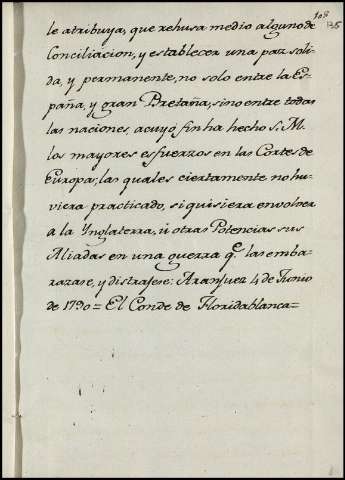 108
135
le atribuya, que rehusa medio alguno de
Conciliacion, y establecer una paz soli-
da, y permanente, no solo entre la Es-
paña, y gran Bretaña, sino entre todas
las naciones, acuyo fin ha hecho S. M.
los mayores esfuerzos en las Cortes de
Europa; las quales ciertamente no hu-
viera practicado, si quisiera envolver
a la Ynglaterra, ú otras Potencias sus
Aliadas en una guerra qe. las emba-
razase, y distrajese: Aranjuez 4 de Junio
de 1790= El Conde de Floridablanca=